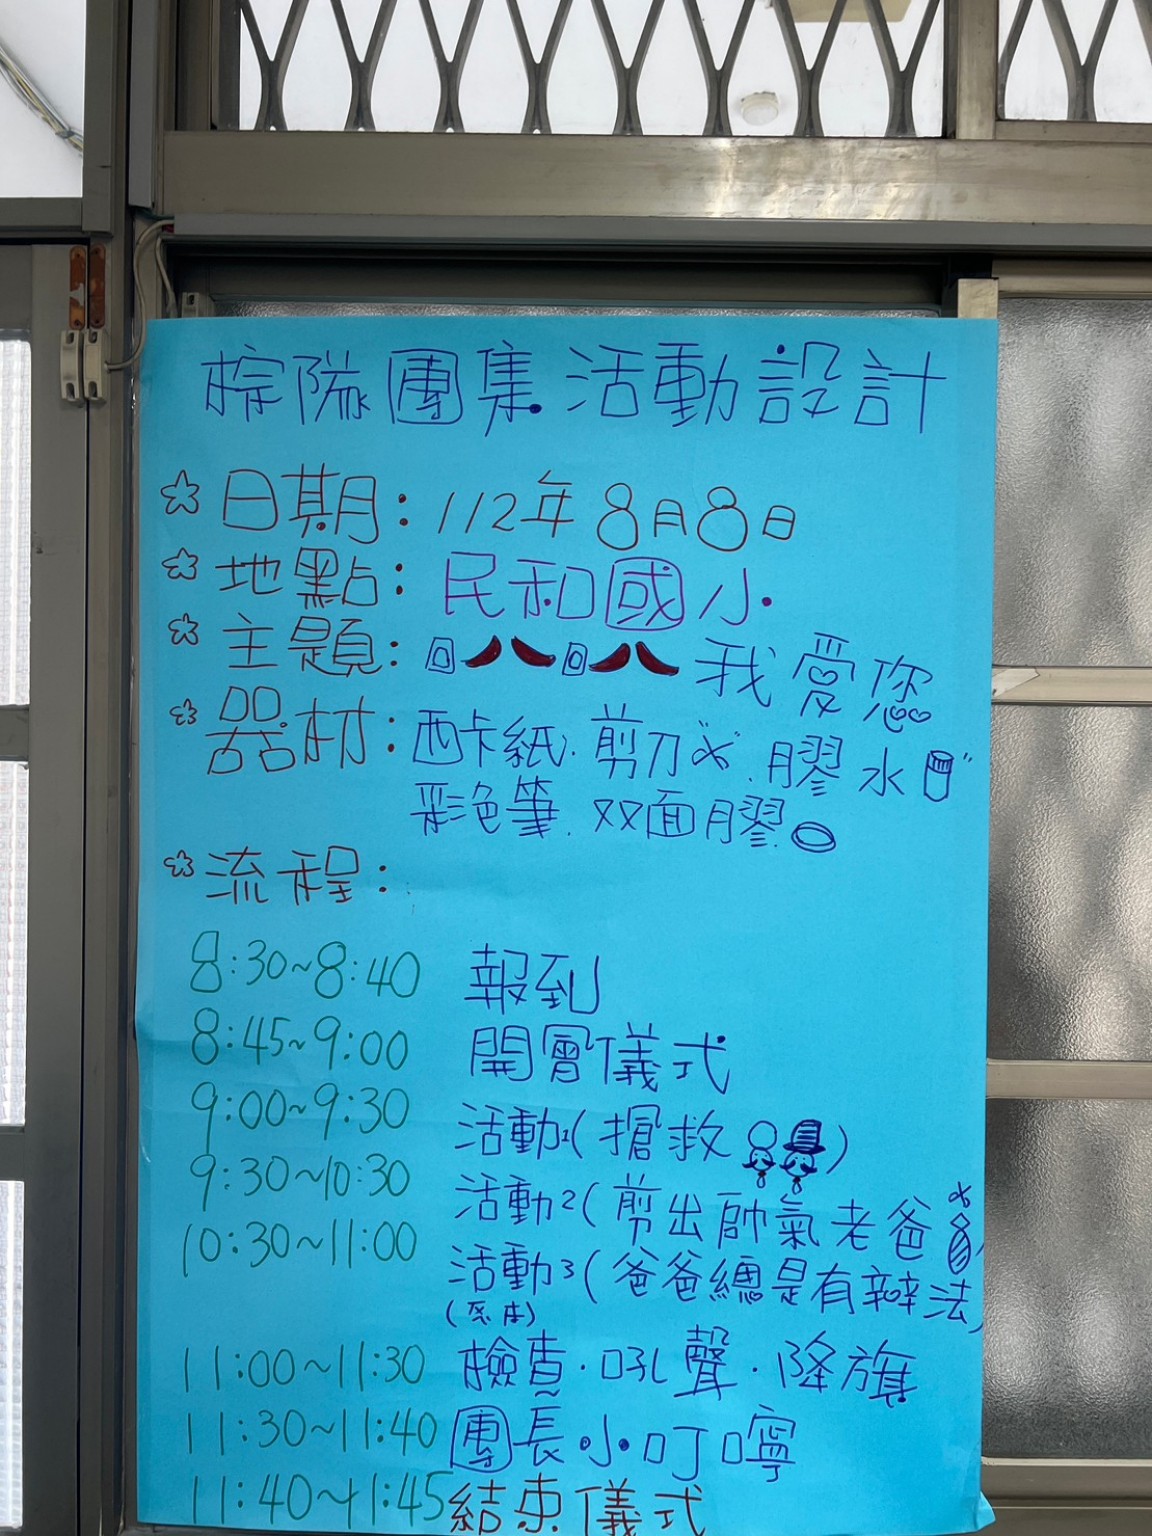 棕隊團集活動設計
日期：112年8月8日
地點：民和國小
主題：八 八 我愛您
器材：西卡紙.剪刀.膠水
彩色筆.双面膠
流程：
8:30~8:40 報到
8:45~9:00 開會儀式
9:00~9:30 活動1(搶救 )
9:30~10:30 活動2(剪出帥氣老爸 )
10:30~11:00 活動3(爸爸總是有辦法)
(繪本)
11:00~11:30 檢查.吼聲.降旗
11:30~11:40 團長小叮嚀
11:40~11:45 結束儀式